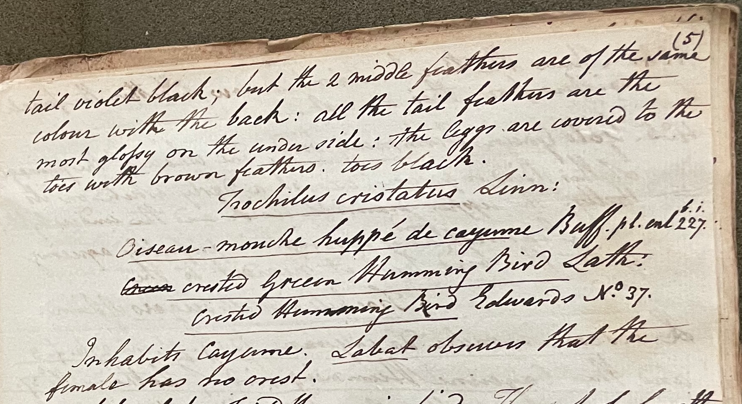 (5)
tail violet black; but the 2 middle feathers are of the same
colour with the back: all the tail feathers are the
most glossy on the under side: the legs are covered to the
toes with brown feathers. toes black.
Trochilus cristatus Linn:
Oiseau-mouche huppé de cayenne Buff. pl. enl 227. f. 1.
Green crested Green Humming Bird Lath:
crested Humming Bird Edwards No. 37.
Inhabits Cayenne. Labat observes that the
female has no crest.